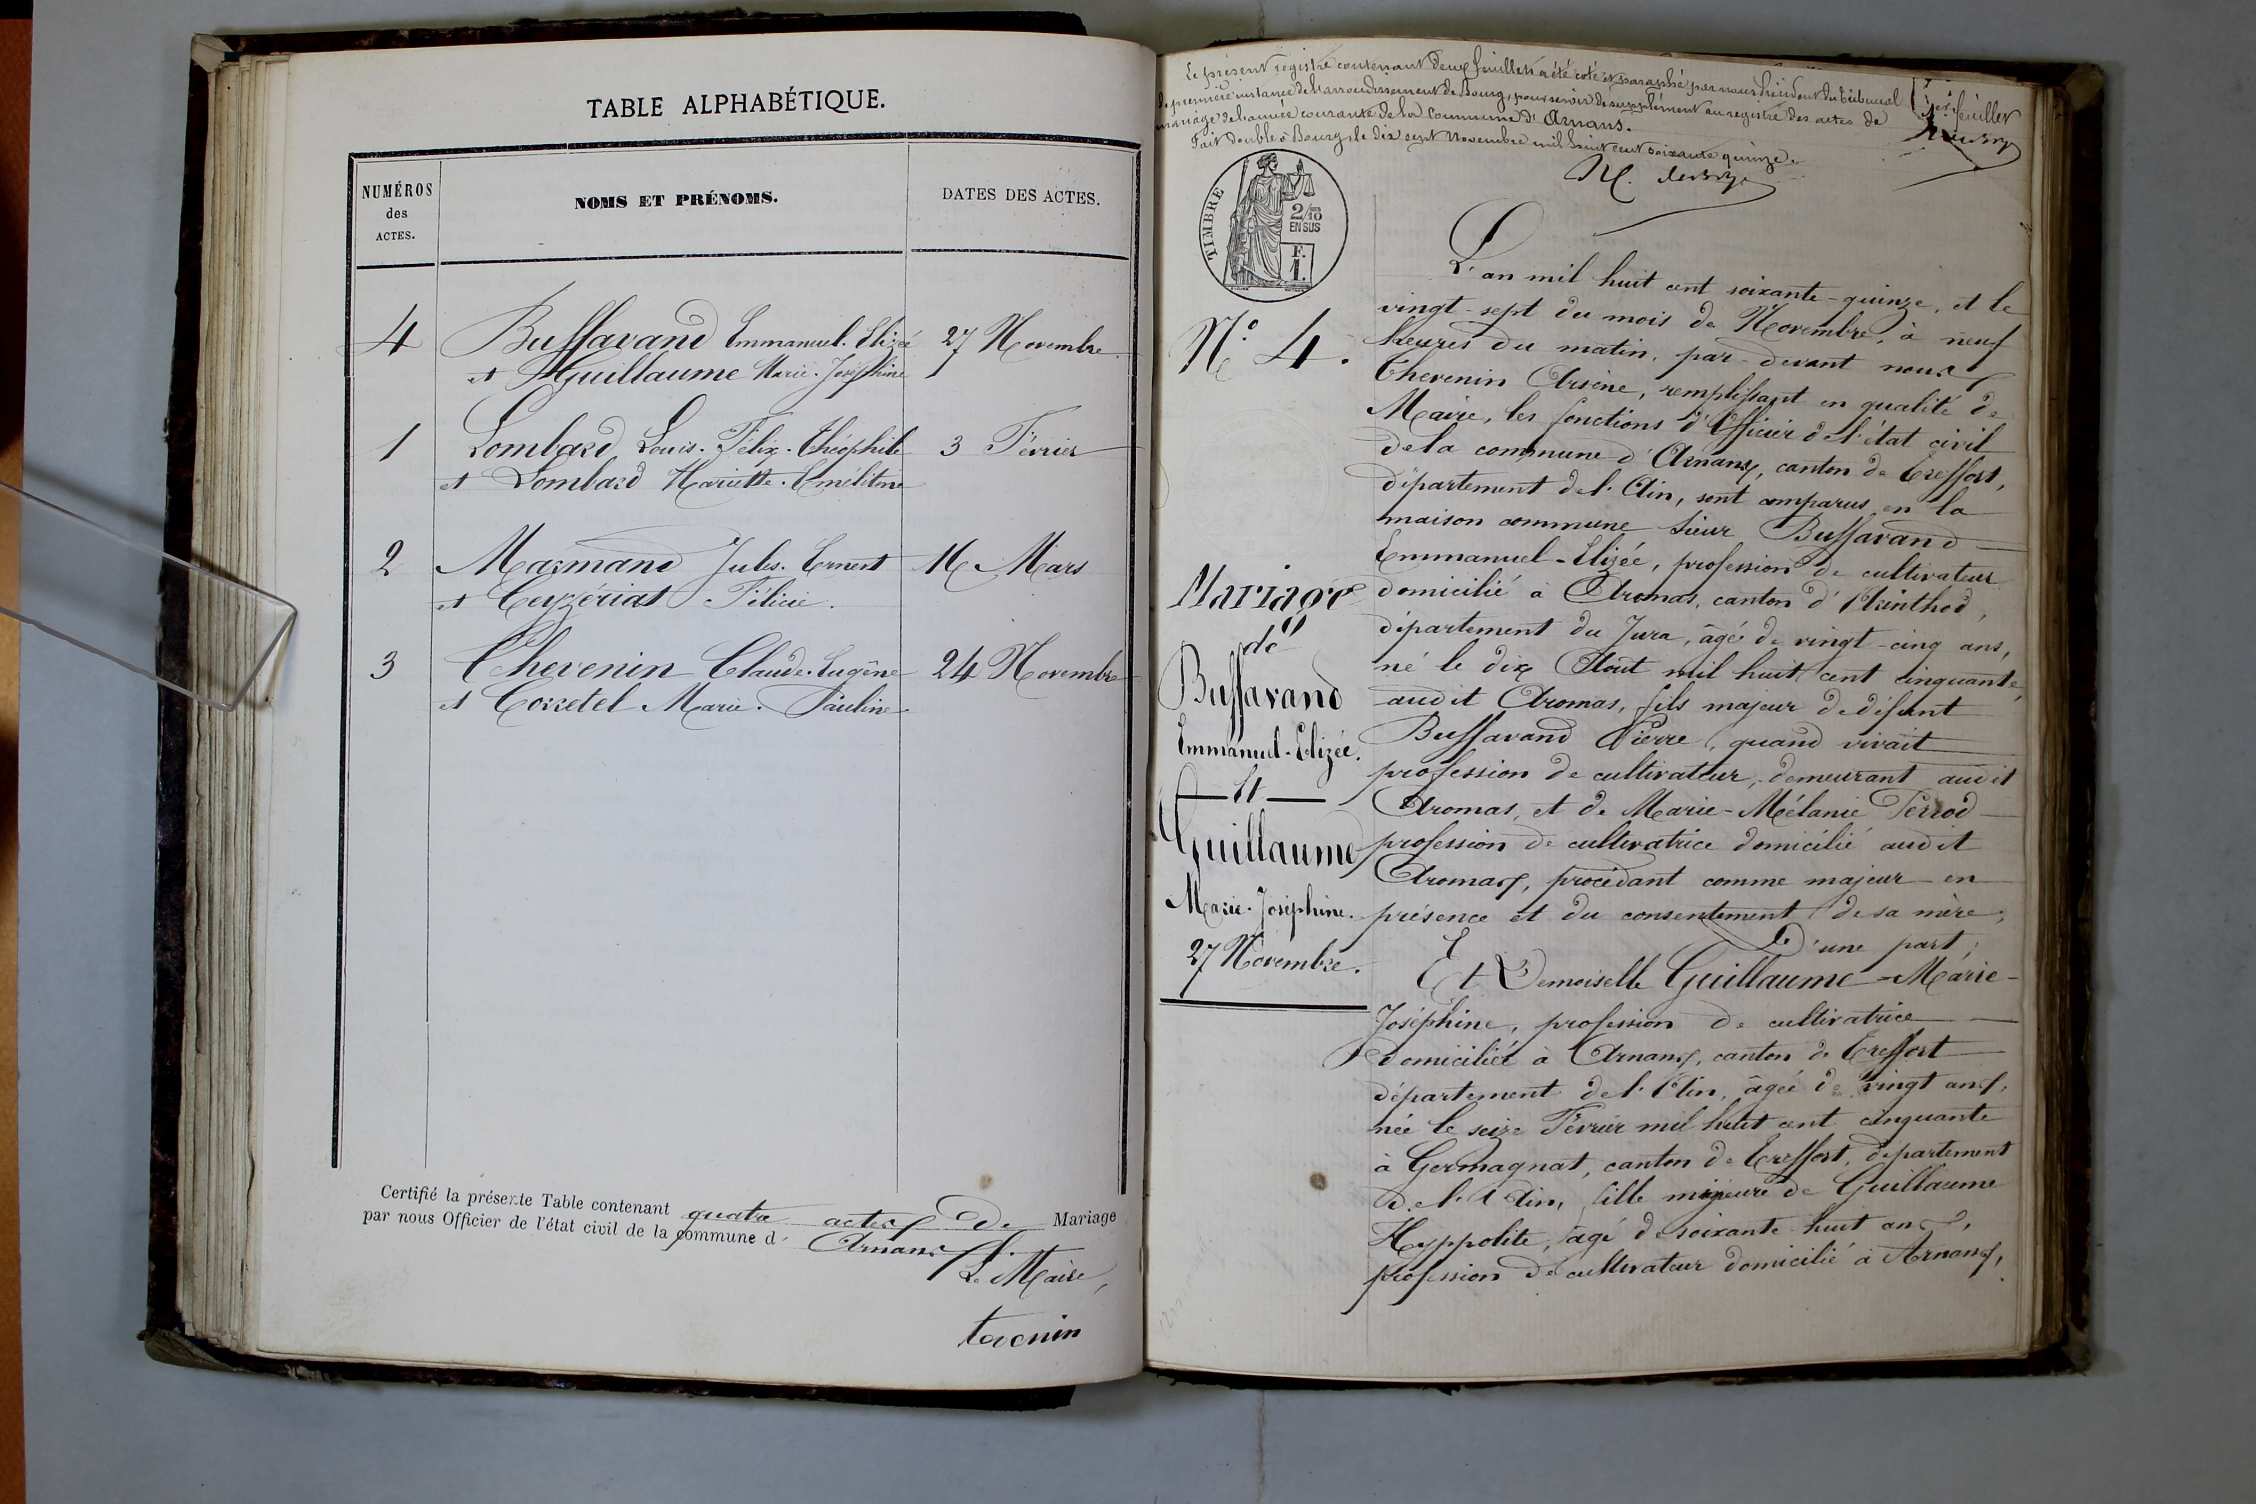 TABLE ALPHABÉTIQUE.
NUMÉROS
des
ACTES.
NOMS ET PRÉNOMS.
DATES DES ACTES.
4 Buffavand Emmanuel-Elizée 27 Novembre
et Guillaume Marie-Joséphine
1 Lombard Louis-Félix-Théophile 3 Février
et Lombard Mariette
2 Marmand Jules-Ernest 16 Mars
et Ceyzériat Félicie.
3 Thevenin Claude-Eugène 24 Novembre
et Corretel Marie-Pauline
Certifié la présente Table contenant quatre actes de Mariage
par nous Officier de l'état civil de la commune d' Arnans.
Le Maire,
tevenin
Le présent registre contenant deux feuillets a été coté et paraphé par nous Président du tribunal
de première instance de l'arrondissement de Bourg, pour servir de supplément au registre des actes de
mariage de l'année courante de la commune d'Arnans.
Fait double à Bourg, le dix sept Novembre mil huit cent soixante quinze.
1er feuillet
TIMBRE
2/10
EN SUS
F.
1.
N.° 4.
Mariage
de
Buffavand
Emmanuel-Elizée.
Et
Guillaume
Marie-Joséphine.
27 Novembre.
L'an mil huit cent soixante-quinze, et le
vingt-sept du mois de Novembre, à neuf
heures du matin, par-devant nous
Thevenin Arsène, remplissant en qualité de
Maire, les fonctions d'Officier de l'état civil
de la commune d'Arnans, canton de Treffort,
département de l'Ain, sont comparus en la
maison commune sieur Buffavand
Emmanuel-Elizée, profession de cultivateur
domicilié à Aromas, canton d'Arinthod,
département du Jura, âgé de vingt-cinq ans,
né le dix Août mil huit cent cinquante,
audit Aromas, fils majeur de défunt
Buffavand Pierre, quand vivait
profession de cultivateur, demeurant audit
Aromas, et de Marie-Mélanie Perrod
profession de cultivatrice domicilié audit
Aromas, procédant comme majeur en
présence et du consentement de sa mère,
D'une part;
Et Demoiselle Guillaume-Marie-
Joséphine, profession de cultivatrice
domiciliée à Arnans, canton de Treffort
département de l'Ain, âgée de vingt ans,
née le seize Février mil huit cent cinquante
à Germagnat, canton de Treffort, département
de l'Ain, fille mineure de Guillaume
Hyppolite, âgé de soixante huit ans,
profession de cultivateur domicilié à Arnans,